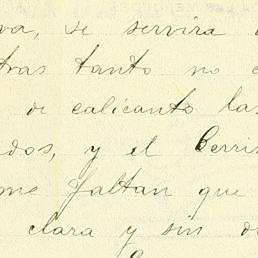 va, se servira
tras tanto no
de calicanto las
dos, y el Cerri
me faltan que
clara y sin